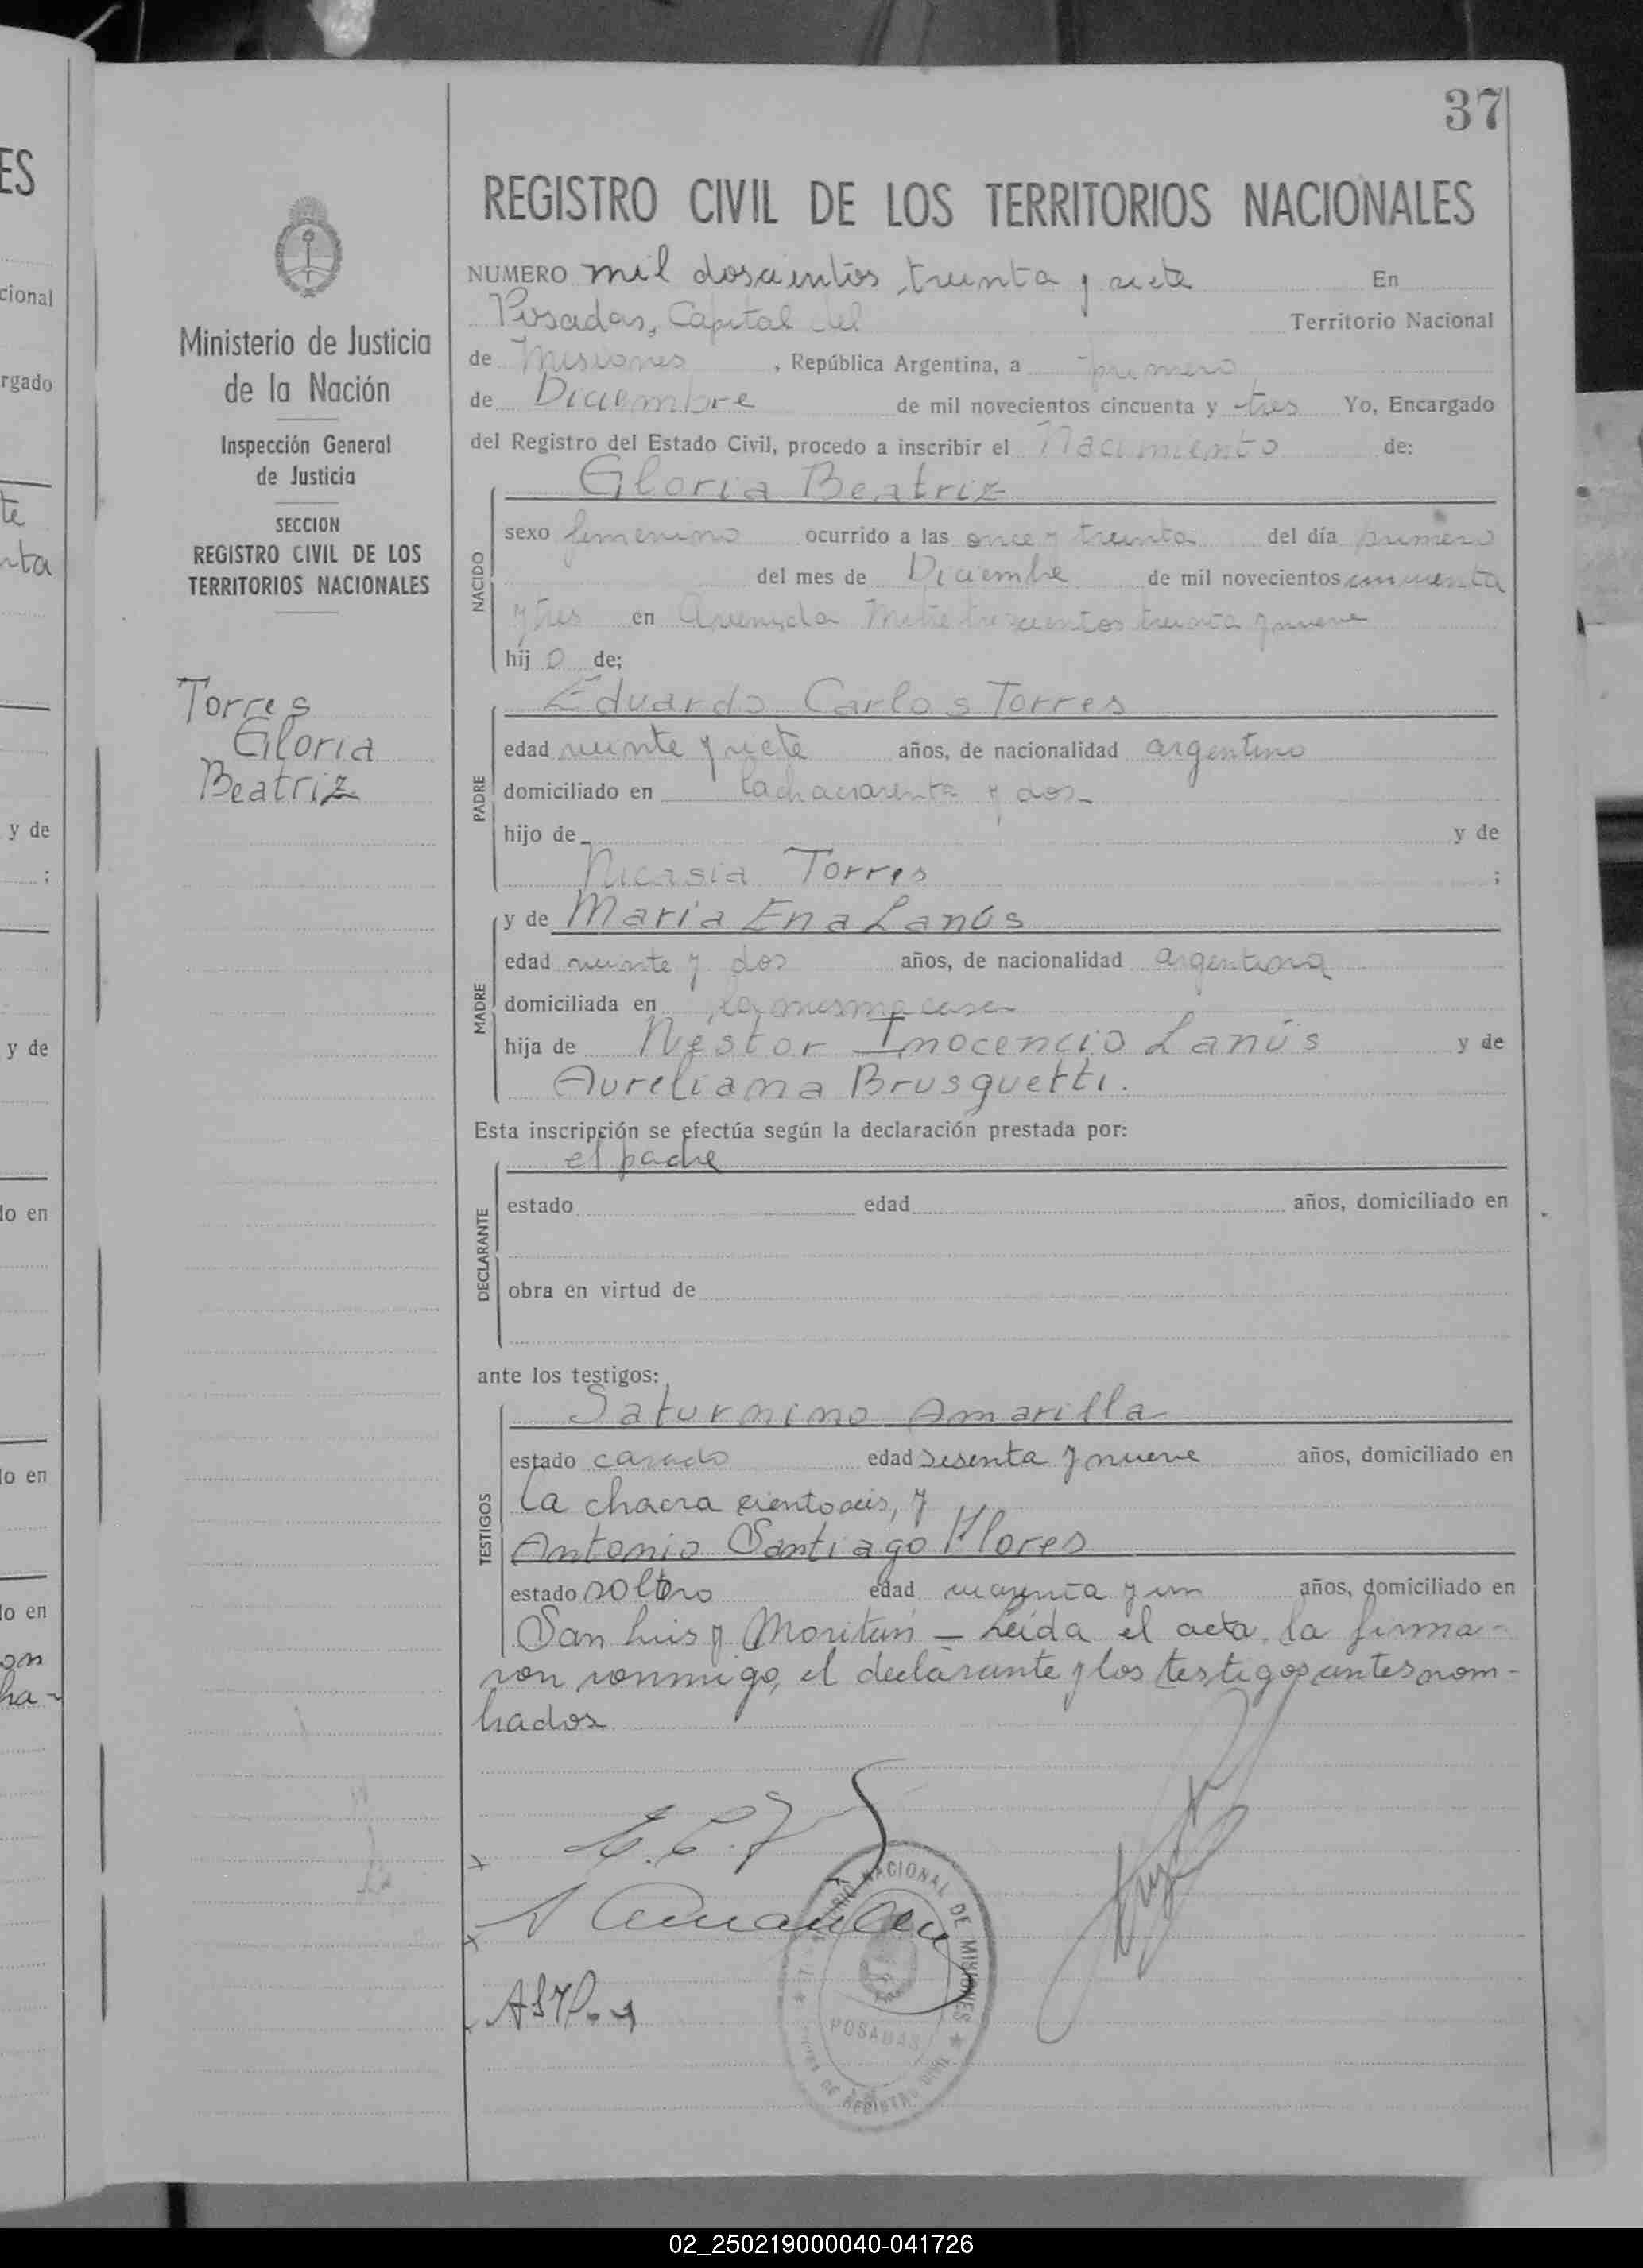 37
REGISTRO CIVIL DE LOS TERRITORIOS NACIONALES
NUMERO mil doscientos treinta y siete En
Posadas, Capital del Territorio Nacional
de Misiones, República Argentina, a primero
de Diciembre de mil novecientos cincuenta y tres Yo, Encargado
del Registro del Estado Civil, procedo a inscribir el Nacimiento de:
Gloria Beatriz
NACIDO
sexo femenino ocurrido a las once y treinta del día primero
del mes de Diciembre de mil novecientos cincuenta
y tres en Avenida Mitre trescientos treinta y nueve
hij a de;
Eduardo Carlos Torres
PADRE
edad veinte y siete años, de nacionalidad argentino
domiciliado en la chacra y dos
hijo de y de
Nicasia Torres ;
y de María Ena Lanús
MADRE
edad veinte y dos años, de nacionalidad argentina
domiciliada en la misma casa
hija de Néstor Inocencio Lanús y de
Aureliana Brusquetti.
Esta inscripción se efectúa según la declaración prestada por:
el padre
DECLARANTE
estado edad años, domiciliado en
obra en virtud de
ante los testigos:
Saturnino Amarilla
TESTIGOS
estado casado edad sesenta y nueve años, domiciliado en
la chacra ciento seis, y
Antonio Santiago Flores
estado soltero edad cuarenta y un años, domiciliado en
San Luis y Moritán — Leída el acta, la firma-
ron conmigo, el declarante y los testigos antes nom-
brados
Ministerio de Justicia
de la Nación
Inspección General
de Justicia
SECCION
REGISTRO CIVIL DE LOS
TERRITORIOS NACIONALES
Torres
Gloria
Beatriz
NACIONAL DE MISIONES
POSADAS
ES
cional
rgado
te
nta
y de
;
y de
lo en
lo en
lo en
on
ha-
02_250219000040-041726